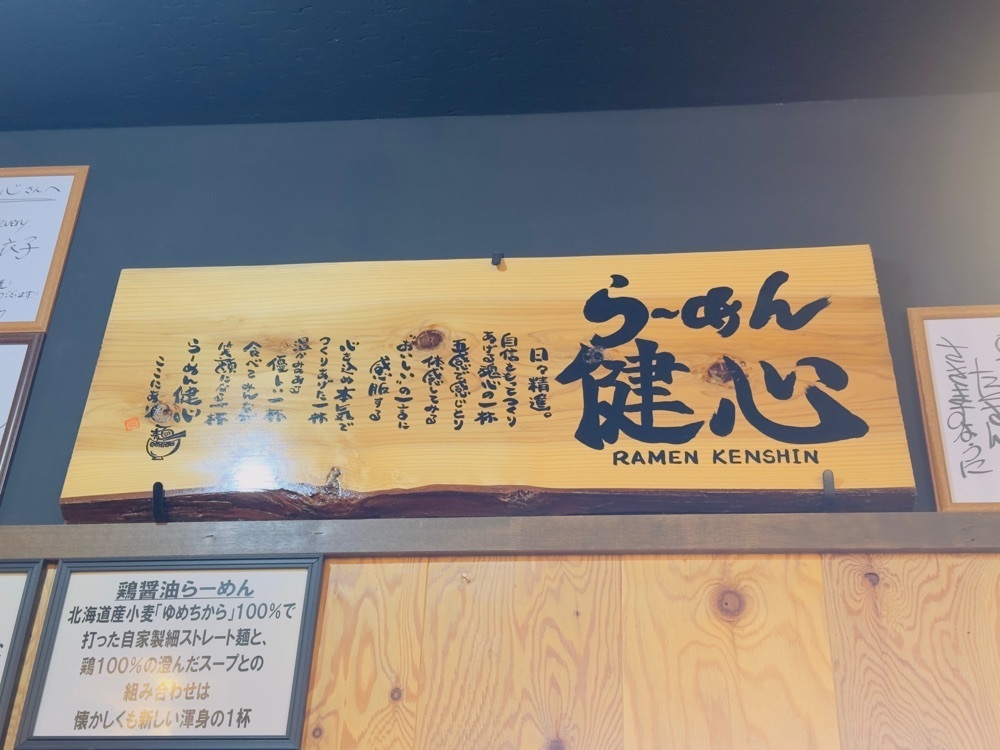 らーめん
健心
RAMEN KENSHIN
日々精進。
自信をもってつくり
あげる魂心の一杯
五感で感じとり
体感してみる
"おいしい"の一言に
感服する
心を込め本気で
つくりあげた一杯
温かみある
優しい一杯
食べたみんなが
笑顔になる一杯
らーめん健心
ここにあり
鶏醤油らーめん
北海道産小麦「ゆめちから」100%で
打った自家製細ストレート麺と、
鶏100%の澄んだスープとの
組み合わせは
懐かしくも新しい渾身の1杯
心さんへ
every
衣子